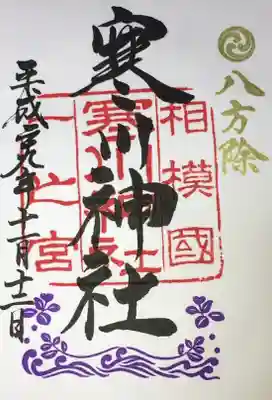 八方除
相模國
寒川神社
寒川神社
一之宮
平成二十九年十一月十二日